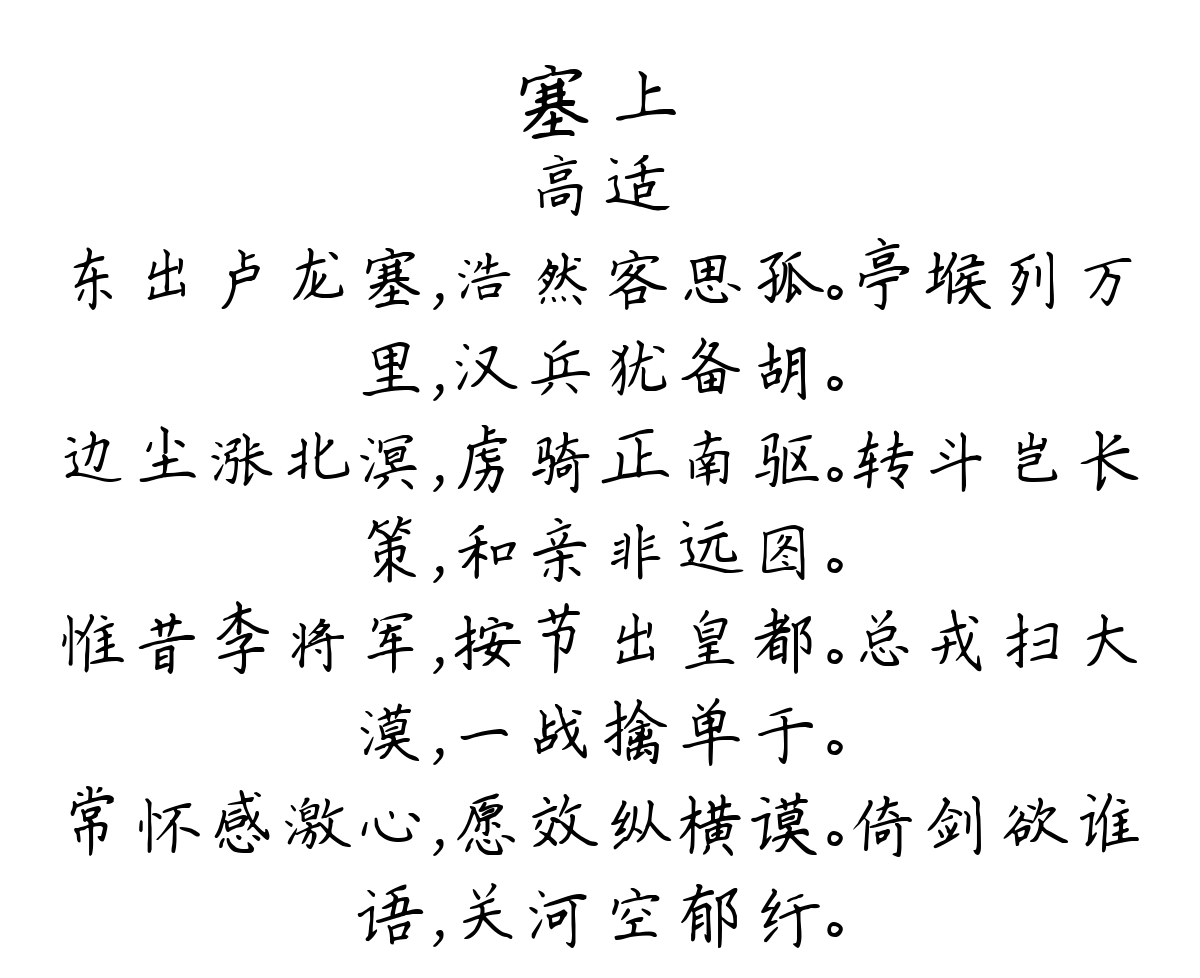 塞上
高适
东出卢龙塞,浩然客思孤。亭堠列万
里,汉兵犹备胡。
边尘涨北溟,虏骑正南驱。转斗岂长
策,和亲非远图。
惟昔李将军,按节出皇都。总戎扫大
漠,一战擒单于。
常怀感激心,愿效纵横谟。倚剑欲谁
语,关河空郁纡。